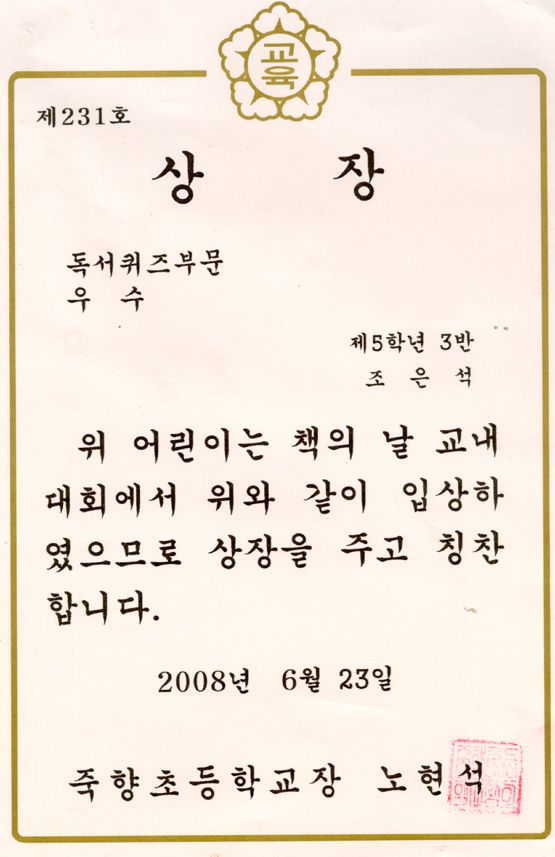 교육
제231호
상 장
독서퀴즈부문
우 수
제5학년 3반
조 은 석
위 어린이는 책의 날 교내
대회에서 위와 같이 입상하
였으므로 상장을 주고 칭찬
합니다.
2008년 6월 23일
죽향초등학교장 노현석